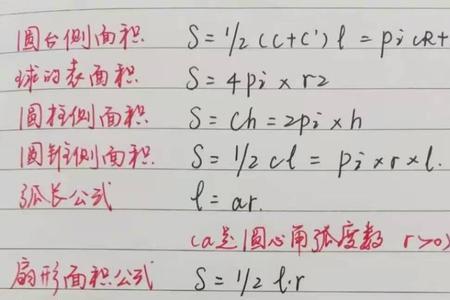 圆台侧面积 S=1/2(c+c')l=pi(R+
球的表面积 S=4pi×r2
圆柱侧面积 S=Ch=2pi×h
圆锥侧面积 S=1/2cl=pi×r×l.
弧长公式 l=ar.
(a是圆心角弧度数 r>0)
扇形面积公式 S=1/2l·r